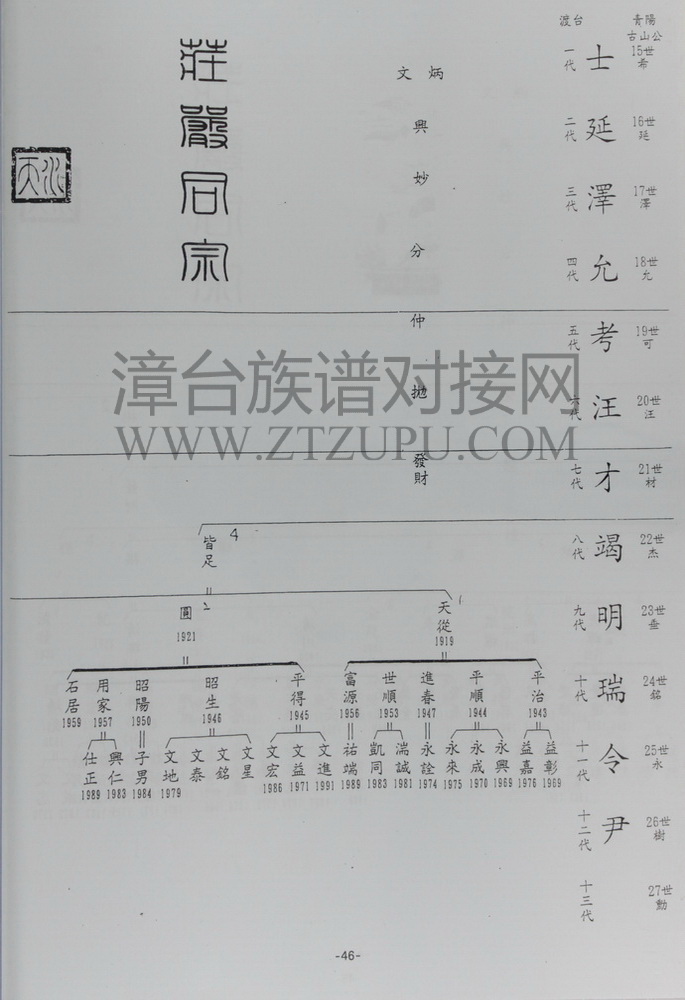 渡台
青陽
古山公
一代 士 15世 希
二代 延 16世 延
三代 澤 17世 澤
四代 允 18世 允
五代 考 19世 可
六代 汪 20世 汪
七代 才 21世 材
八代 竭 22世 杰
九代 明 23世 垂
十代 瑞 24世 銘
十一代 令 25世 永
十二代 尹 26世 樹
十三代 27世 勳
炳
文
興
妙
分
仲
拋
發財
莊嚴同宗
漳台族谱对接网
WWW.ZTZUPU.COM
皆足 4
天從 1
1919
圓 2
1921
平治 1943
平順 1944
進春 1947
世順 1953
富源 1956
平得 1945
昭生 1946
昭陽 1950
用家 1957
石居 1959
益彰 1969
益嘉 1976
永興 1969
永成 1970
永來 1975
永詮 1974
湍誠 1981
凱同 1983
祐端 1989
文進 1991
文益 1971
文宏 1986
文星
文銘
文泰
文地 1979
子男 1984
興仁 1983
仕正 1989
-46-